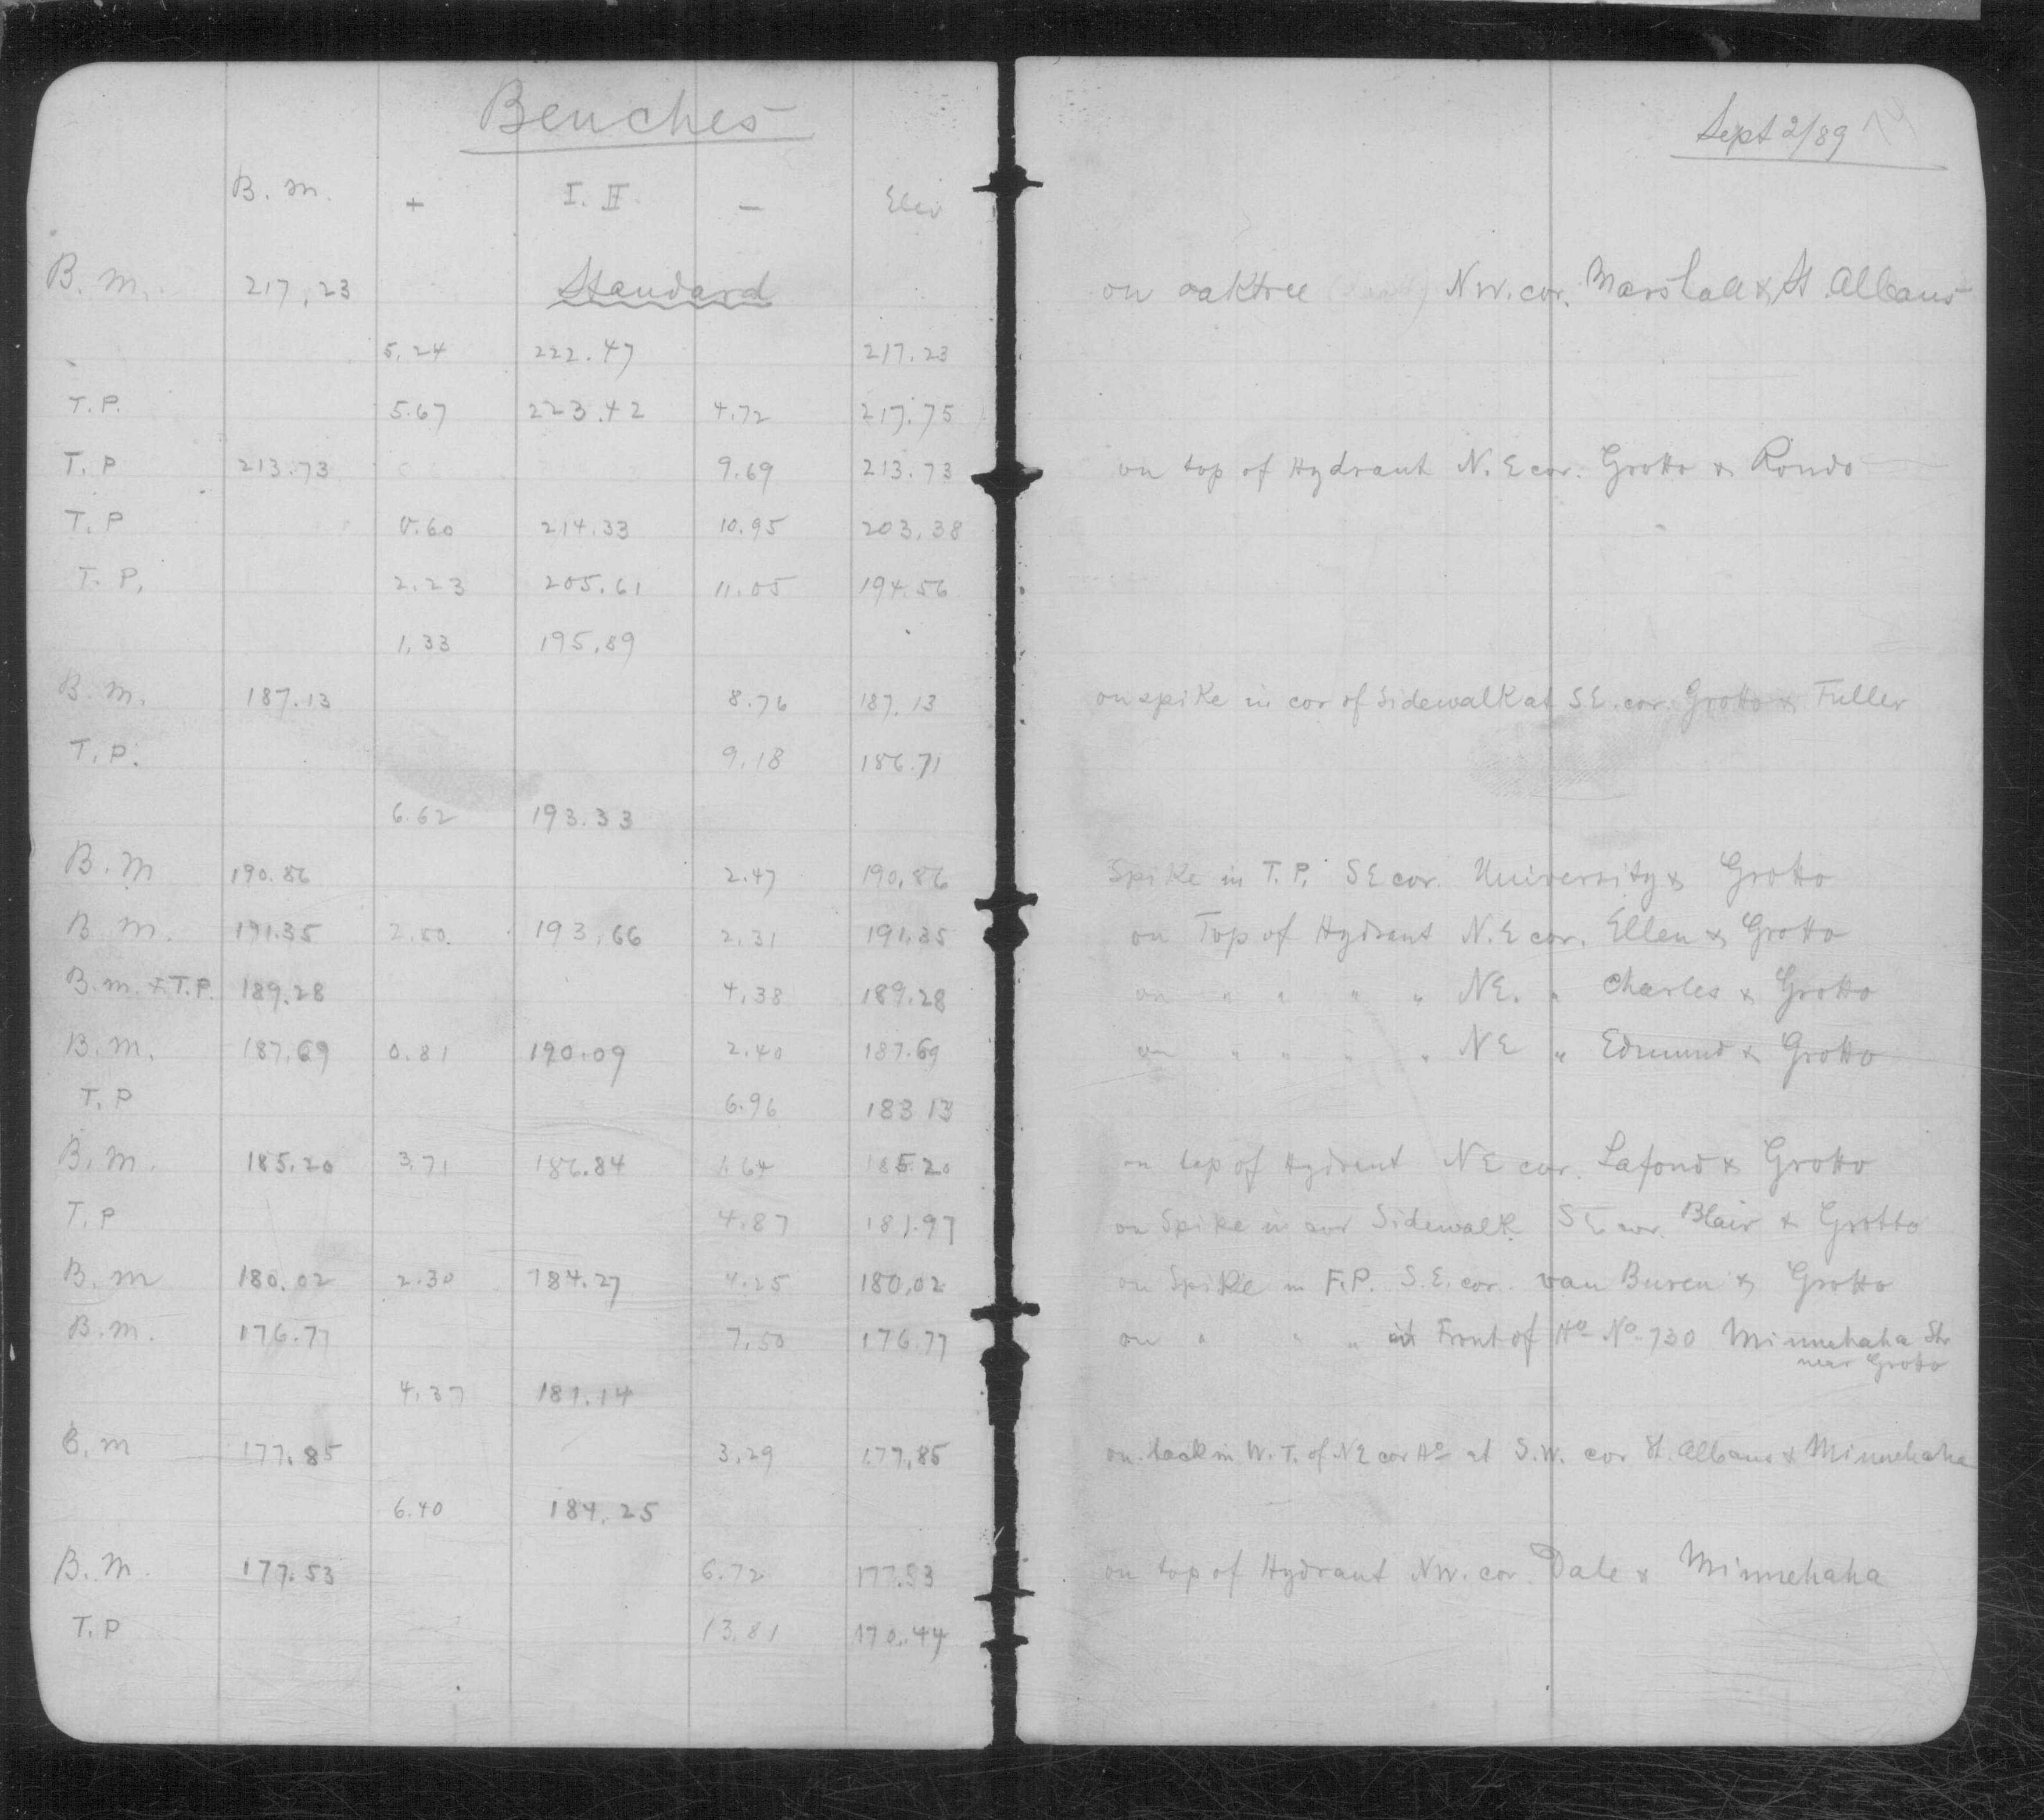 Benches
Sept 2/89
B.M. + I.H. - Elev
B.M. 217.23 Standard on oaktree N.W. cor. Marshall & St. Albans
5.24 222.47 217.23
T.P. 5.67 223.42 4.72 217.75
T.P 213.73 9.69 213.73 on top of Hydrant N.E cor. Grotto & Rondo
T.P 0.60 214.33 10.95 203.38
T.P. 2.23 205.61 11.05 194.56
1.33 195.89
B.M. 187.13 8.76 187.13 on spike in cor of Sidewalk at S.E. cor. Grotto & Fuller
T.P. 9.18 186.71
6.62 193.33
B.M 190.86 2.47 190.86 Spike in T.P. S E cor. University & Grotto
B.M. 191.35 2.80 193.66 2.31 191.35 on Top of Hydrant N.E cor. Ellen & Grotto
B.M. & T.P. 189.28 4.38 189.28 on " " " " NE. " Charles & Grotto
B.M. 187.69 0.81 190.09 2.40 187.69 on " " " " NE " Edmund & Grotto
T.P 6.96 183.13
B.M. 185.20 3.71 186.84 1.64 185.20 on top of Hydrant N E cor. Lafond & Grotto
T.P 4.87 181.97 on Spike in cor Sidewalk S E cor. Blair & Grotto
B.M 180.02 2.30 184.27 4.25 180.02 on Spike in F.P. S.E. cor. van Buren & Grotto
B.M. 176.77 7.50 176.77 on " " " in Front of Ho No 730 Minnehaha Str
near Grotto
4.37 181.14
B.M 177.85 3.29 177.85 on tack in W.T. of NE cor Ho at S.W. cor St. Albans & Minnehaha
6.40 184.25
B.M. 177.53 6.72 177.53 on top of Hydrant NW. cor. Dale & Minnehaha
T.P 13.81 170.44